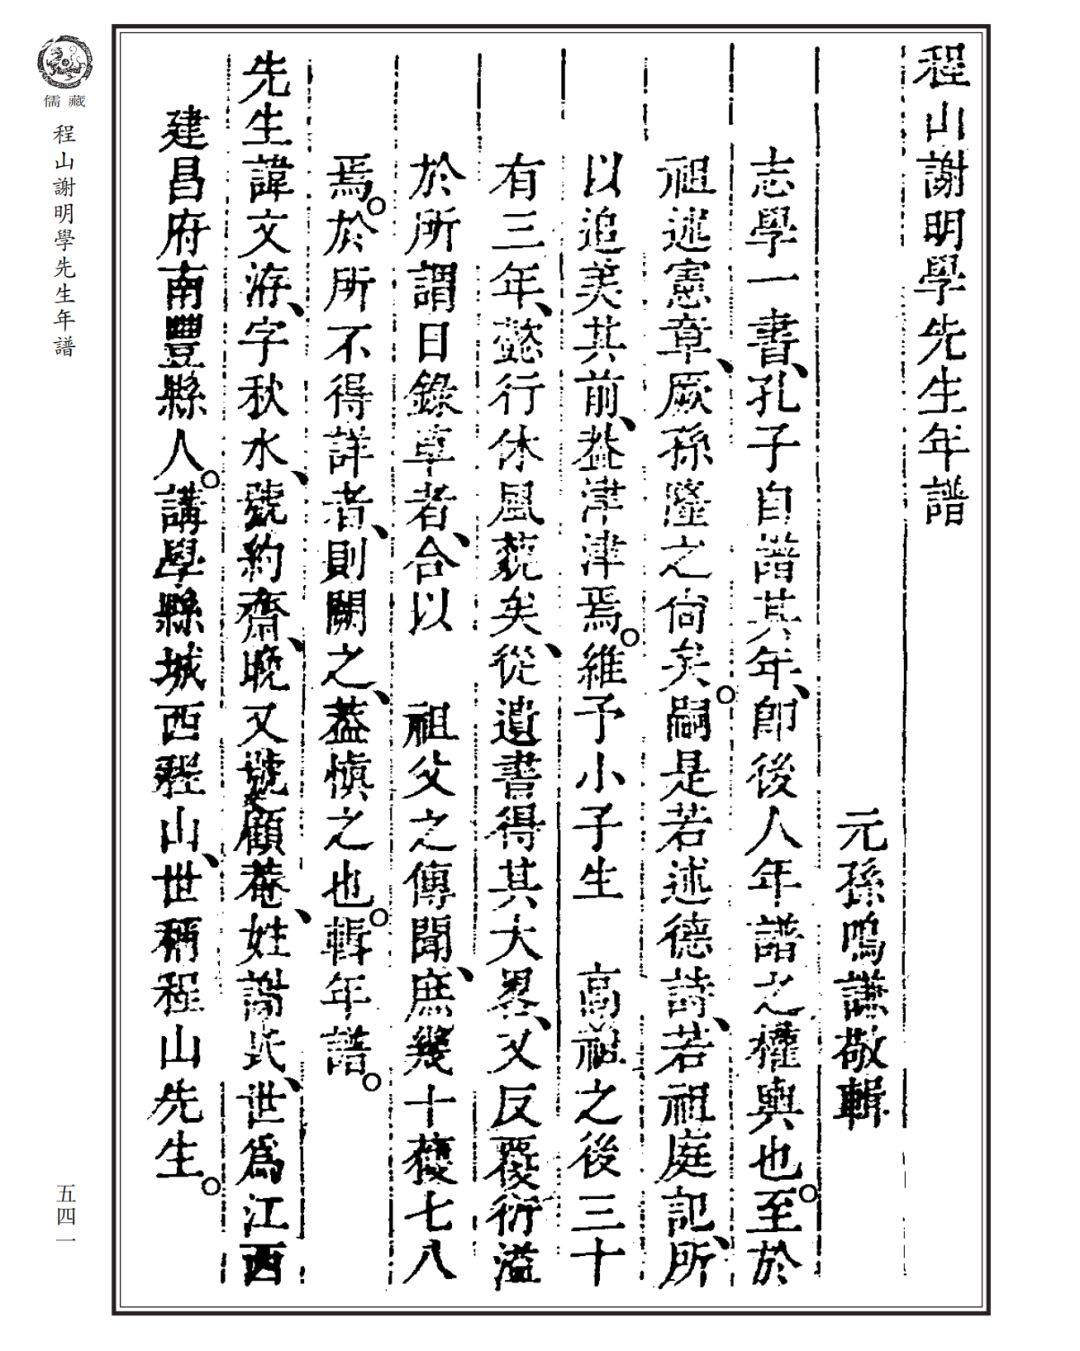 程山謝明學先生年譜
元孫鳴謙敬輯
志學一書、孔子自譜其年、卽後人年譜之權輿也。至於
祖述憲章、厥孫隆之尙矣。嗣是若述德詩、若祖庭記、所
以追美其前、益津津焉。維予小子生　高祖之後三十
有三年、懿行休風藐矣、從遺書得其大畧、又反覆衍溢
於所謂日錄草者、合以　祖父之傳聞、庶幾十穫七八
焉。於所不得詳者、則闕之、葢愼之也。輯年譜。
先生諱文洊、字秋水、號約齋、晚又號顧菴、姓謝氏、世爲江西
建昌府南豐縣人。講學縣城西程山、世稱程山先生。
儒藏
程山謝明學先生年譜
五四一